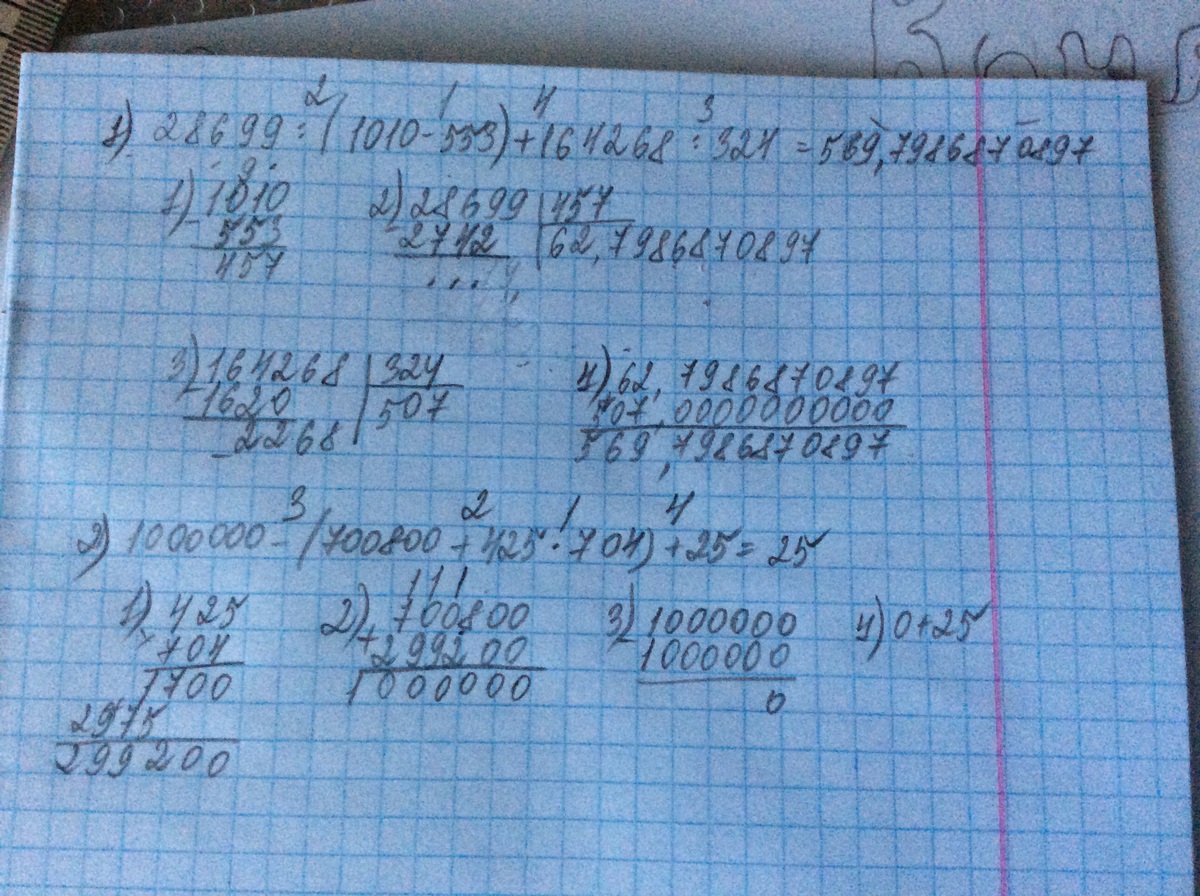 1) 28699 : (1010 - 553) + 164268 : 324 = 569,7986870897
2 1 4 3
1) 1010 2) 28699 | 457
- 553 - 2742 | 62,7986870897
457 ...
3) 164268 | 324 4) 62,7986870897
- 1620 | 507 507,0000000000
- 2268 569,7986870897
3 2 1 4
2) 1000000 - (700800 + 425 · 704) + 25 = 25
1) 425 2) 700800 3) 1000000 4) 0+25
× 704 + 299200 - 1000000
1700 1000000 0
2975
299200